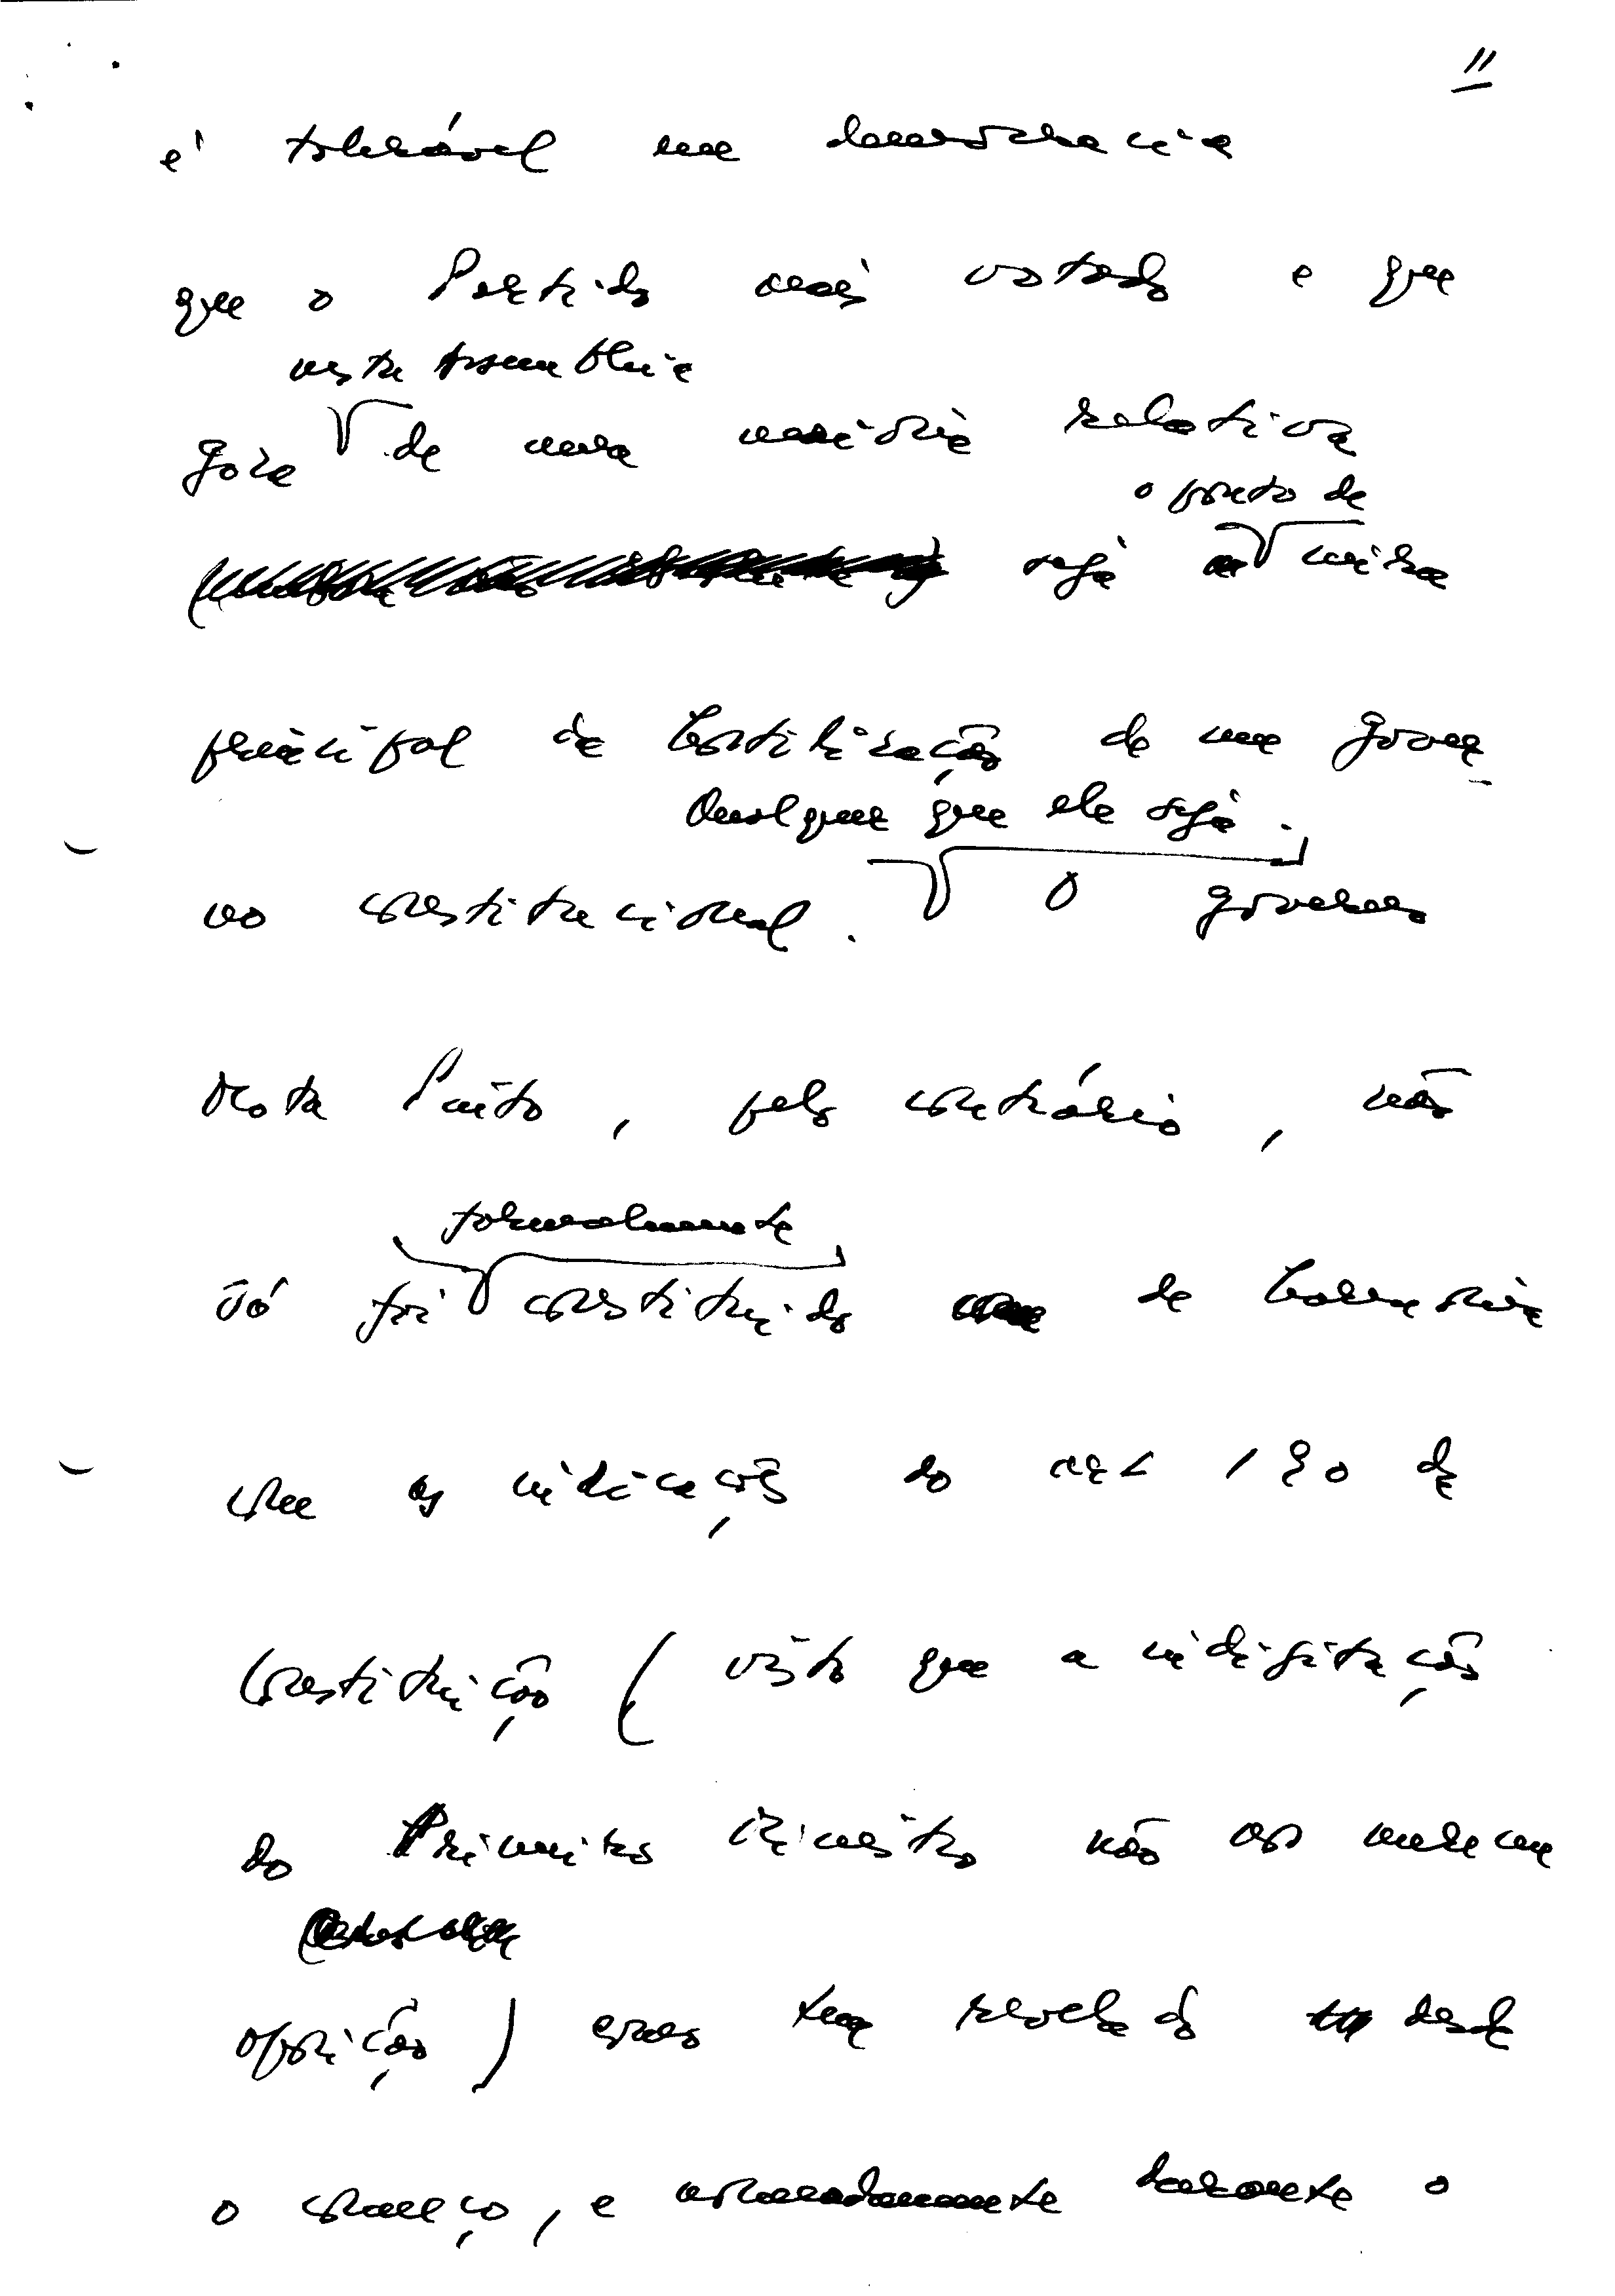 11
é tolerável em democracia
que o Partido mais votado e que
nesta Assembleia
goza de uma maioria relativa
o ponto de
seja mira
principal de hostilização de um Gover-
Qualquer que ele seja.
no constitucional. O governo
Mota Pinto, pelo contrário, não
formalmente
só foi constituido de harmonia
com as indicações do art 190 da
Constituição (visto que a indigitação
do Primeiro Ministro não ao merecem
oposição) como tem revelado desde
o começo, e nomeadamente durante o